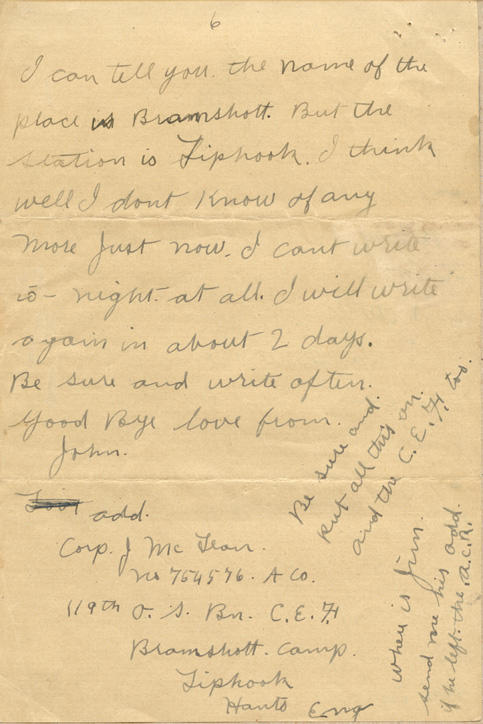 6
I can tell you the name of the
place is Bramshott. But the
station is Liphook. I think
well I dont know of any
more just now. I cant write
to-night at all. I will write
again in about 2 days.
Be sure and write often.
Good Bye love from.
John.
add.
Corp. J McLean.
No 754576. A Co.
119th O. S. Bn. C. E. F
Bramshott Camp.
Liphook
Hants Eng
Be sure and
put all this on.
and the C. E. F. too.
where is Jim.
send me his add.
if he left the A.C.R.